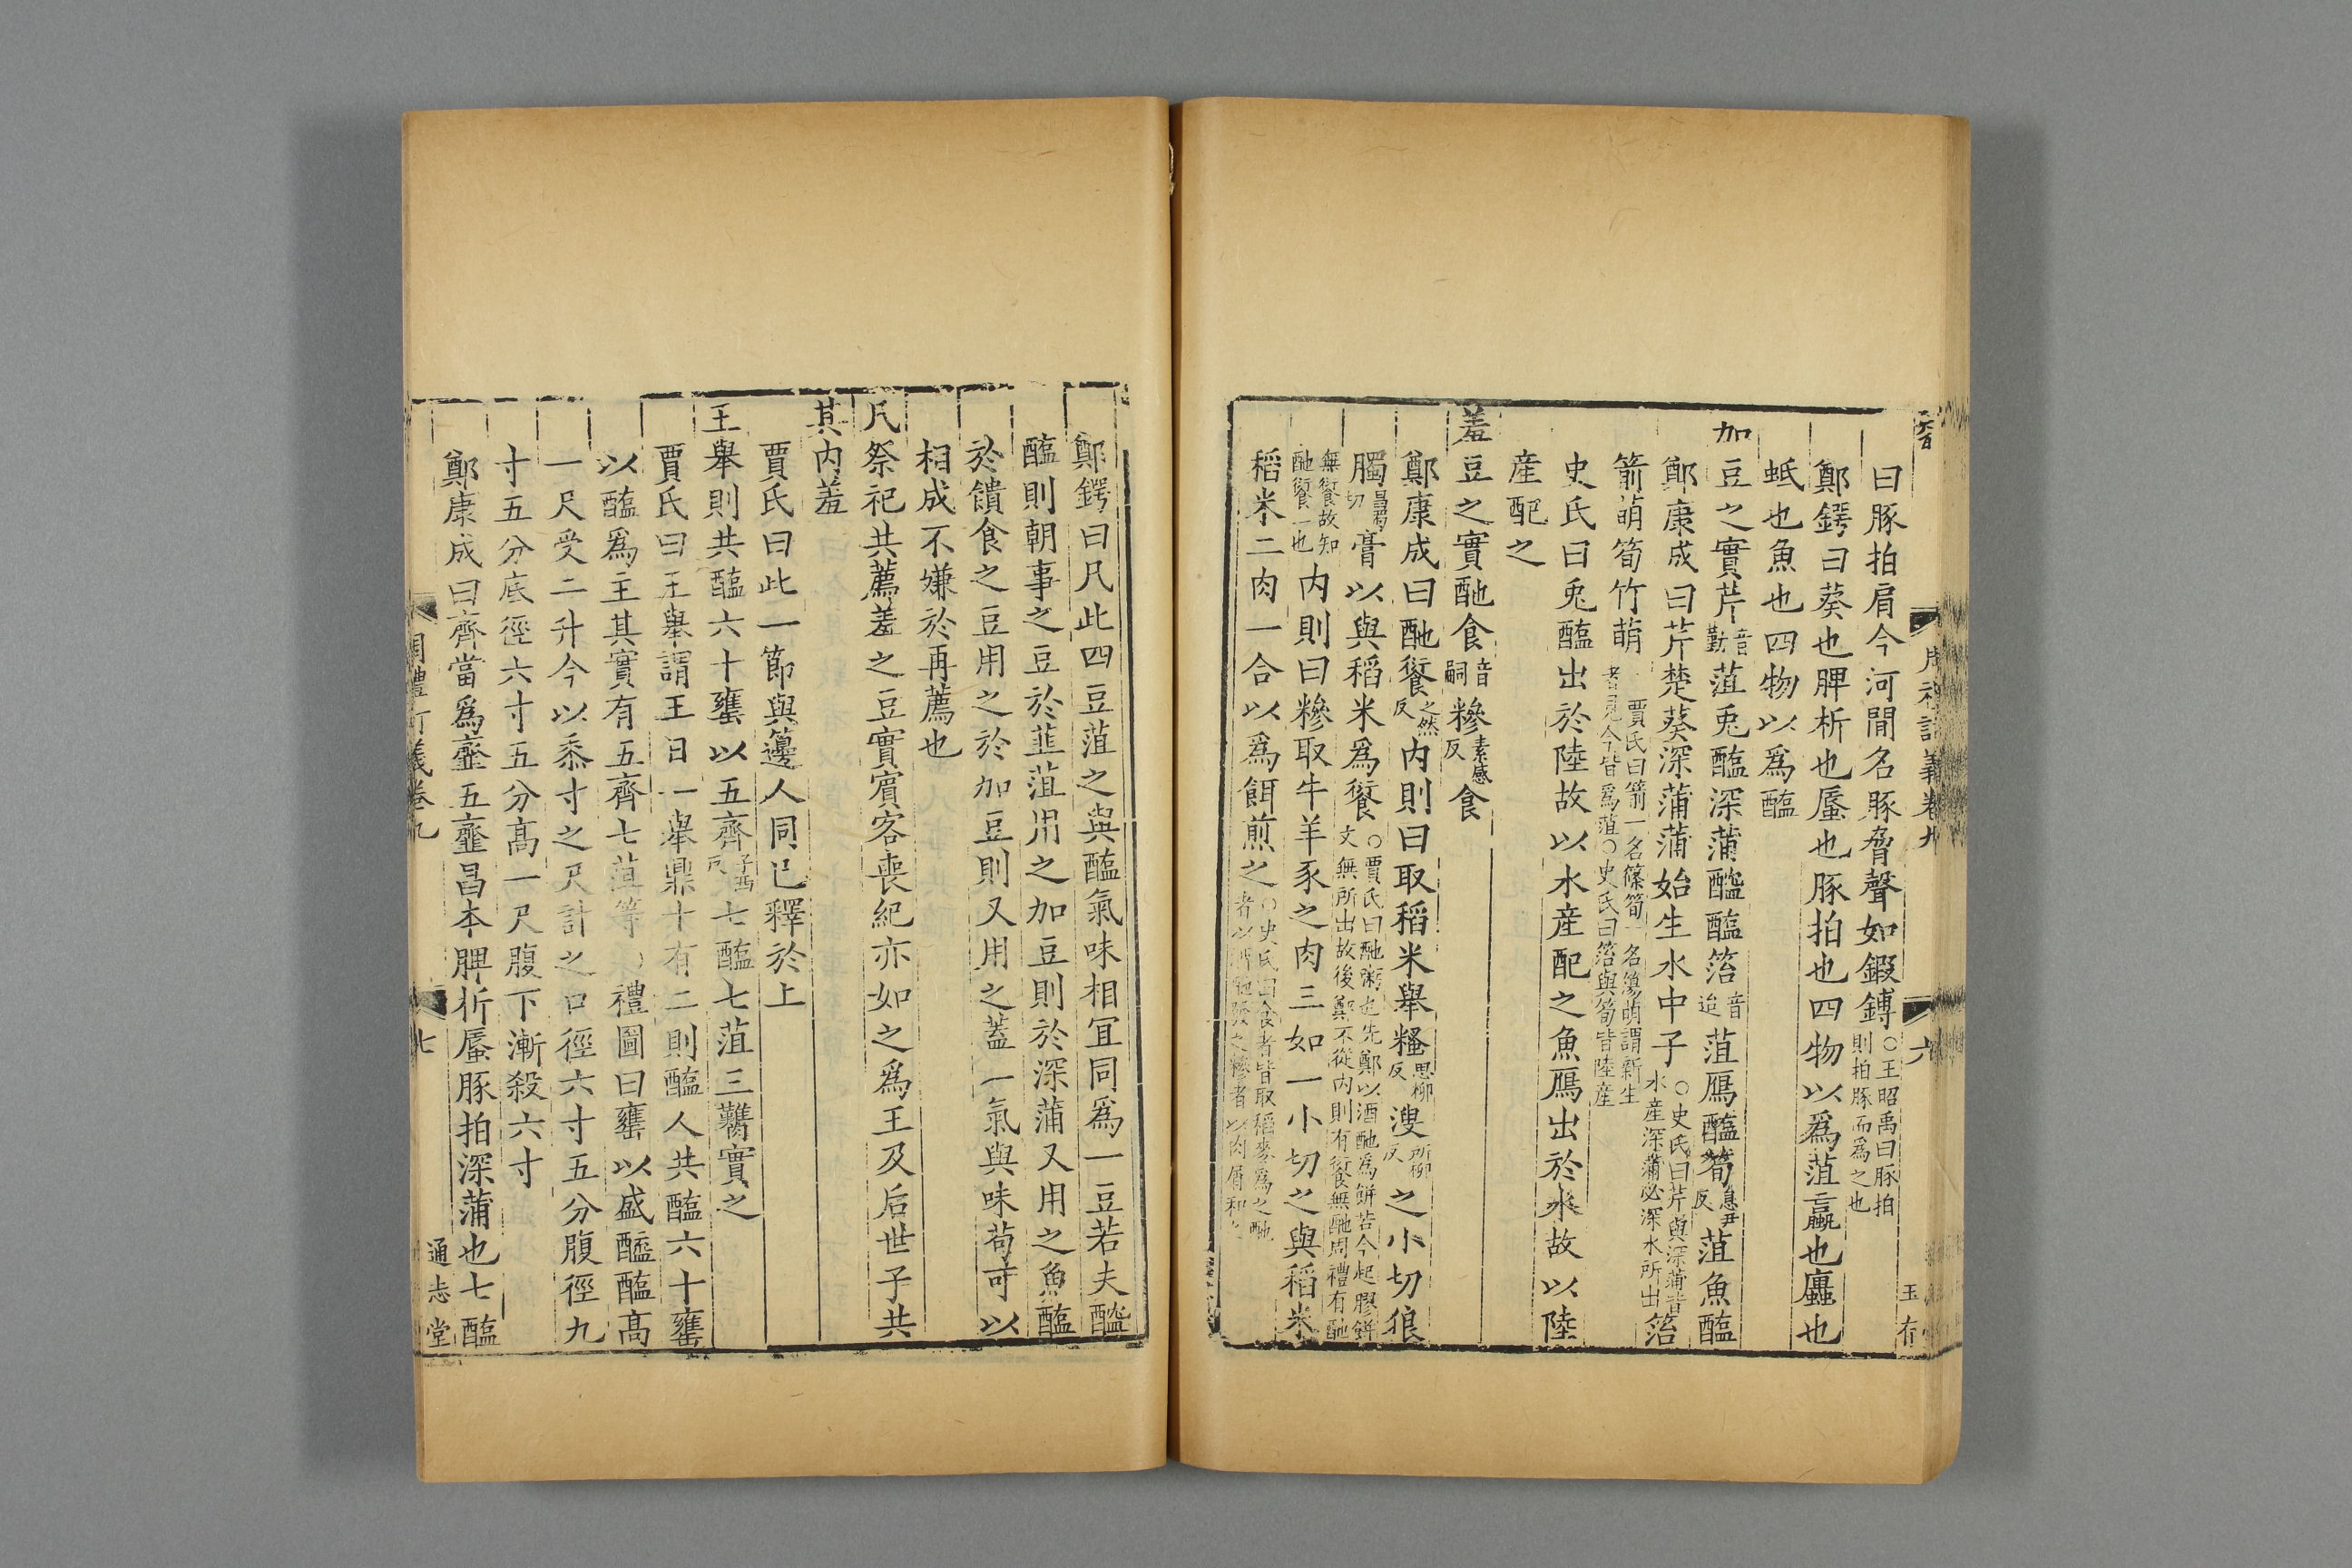 周禮訂義卷九
六
玉有
曰豚拍肩今河間名豚脅聲如鍜鎛○王昭禹曰豚拍則拍豚而爲之也
鄭鍔曰葵也脾析也蜃也豚拍也四物以爲菹蠃也蠯也
蚳也魚也四物以爲醢
加豆之實芹音勤菹兎醢深蒲醓醢箈音迨菹鴈醢筍息尹反菹魚醢
鄭康成曰芹楚葵深蒲蒲始生水中子○史氏曰芹與深蒲皆水産深蒲必深水所出箈
箭萌筍竹萌賈氏曰箭一名篠筍一名簜萌謂新生者見今皆爲菹○史氏曰箈與筍皆陸産
史氏曰兎醢出於陸故以水産配之魚鴈出於水故以陸
産配之
羞豆之實酏食音嗣糝素感反食
鄭康成曰酏餰之然反内則曰取稻米舉糔思柳反溲所柳反之小切狼
臅昌蜀切膏以與稻米爲餰○賈氏曰酏粥也先鄭以酒酏爲餅若今起膠餅文無所出故後鄭不從内則有餰無酏周禮有酏
無餰故知酏餰一也内則曰糝取牛羊豕之肉三如一小切之與稻米
稻米二肉一合以爲餌煎之○史氏曰食者皆取稻麥爲之酏者以
鄭鍔曰凡此四豆菹之與醢氣味相宜同爲一豆若夫醓
醢則朝事之豆於韮菹用之加豆則於深蒲又用之魚醢
於饋食之豆用之於加豆則又用之蓋一氣與味苟可以
相成不嫌於再薦也
凡祭祀共薦羞之豆實賓客喪紀亦如之爲王及后世子共
其内羞
賈氏曰此一節與籩人同已釋於上
王舉則共醢六十罋以五齊子兮反七醢七菹三臡實之
賈氏曰王舉謂王日一舉鼎十有二則醢人共醢六十罋
以醢爲主其實有五齊七菹等○禮圖曰罋以盛醯醢高
一尺受二升今以黍寸之尺計之口徑六寸五分腹徑九
寸五分底徑六寸五分高一尺腹下漸殺六寸
鄭康成曰齊當爲齏五齏昌本脾析蜃豚拍深蒲也七醢
周禮訂義卷九
七
通志堂